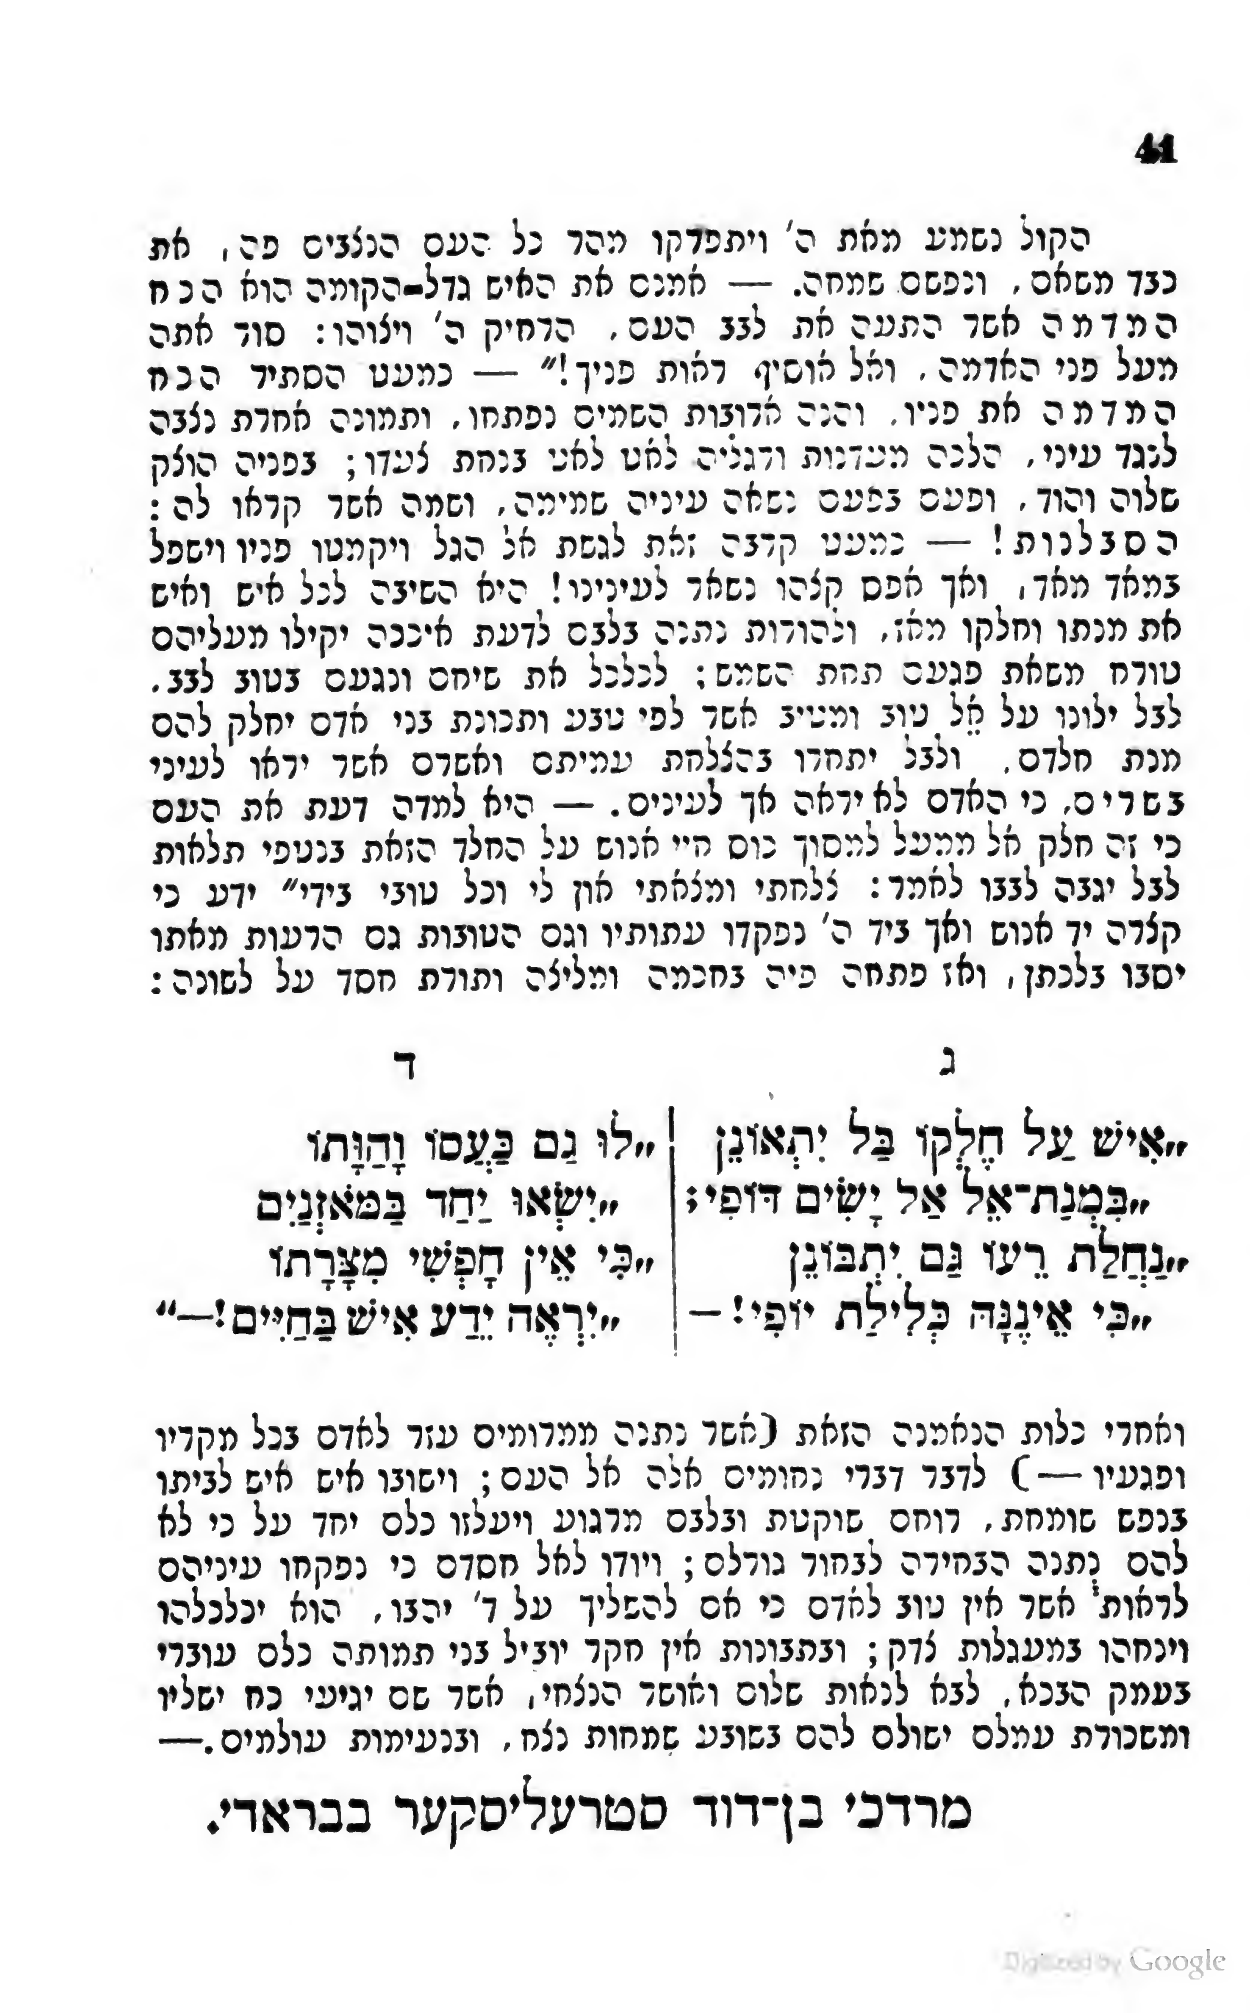 41
הקול נשמע מאת ה' ויתפרקו מהר כל העם הנצבים פה, את
כבד משאם, ונפשם שמחה. — אמנם את האיש גדל-הקומה הוא הכח
המדמה אשר התעה את לבב העם, הרחיק ה' ויצוהו: סור אתה
מעל פני האדמה, ואל אוסיף ראות פניך!" — כמעט הסתיר הכח
המדמה את פניו, והנה ארובות השמים נפתחו, ותמונה אחרת נצבה
לנגד עיני, הלכה מעדנות ורגליה לאט לאט בנחת צעדו; בפניה הוצק
שלוה והוד, ופעם בפעם נשאה עיניה שמימה, ושמה אשר קראו לה:
הסבלנות! — כמעט קרבה זאת לגשת אל הגל ויקמטו פניו וישפל
במאד מאד, ואך אפס קצהו נשאר לעינינו! היא השיבה לכל איש ואיש
את מנתו וחלקו מאז, ולהורות נתנה בלבם לדעת איככה יקילו מעליהם
טורח משאת פגעם תחת השמש; לכלכל את שיחם ונגעם בטוב לבב,
לבל ילונו על אֵל טוב ומטיב אשר לפי טבע ותכונת בני אדם יחלק להם
מנת חלדם, ולבל יתחרו בהצלחת עמיתם ואשרם אשר יראו לעיני
בשרים, כי האדם לא יראה אך לעינים. — היא למדה דעת את העם
כי זה חלק אל ממעל למסוך כוס חיי אנוש על החלד הזאת בנטפי תלאות
לבל יגבה לבבו לאמר: צלחתי ומצאתי און לי וכל טובי בידי" ידע כי
קצרה יד אנוש ואך ביד ה' נפקדו עתותיו וגם הטובות גם הרעות מאתו
יסבו בלכתן, ואז פתחה פיה בחכמה ומליצה ותורת חסד על לשונה:
ג
„אִישׁ עַל חֶלְקוֹ בַּל יִתְאוֹנֵן
„בִּמְנַת־אֵל אַל יָשִׂים דּוֹפִי;
„נַחֲלַת רֵעוֹ גַּם יִתְבּוֹנֵן
„כִּי אֵינֶנָּה כְּלִילַת יוֹפִי! —
ד
„לוּ גַם כַּעֲסוֹ וָהַוָּתוֹ
„יִשְׂאוּ יַחַד בַּמֹּאזְנַיִם
„כִּי אֵין חָפְשִׁי מִצָּרָתוֹ
„יִרְאֶה יֵדַע אִישׁ בַּחַיִּים! —"
ואחרי כלות הנאמנה הזאת (אשר נתנה ממרומים עזר לאדם בכל מקריו
ופגעיו —) לדבר דברי נחומים אלה אל העם; וישובו איש איש לביתו
בנפש שומחת, רוחם שוקטת ובלבם מרגוע ויעלזו כלם יחד על כי לא
להם נתנה הבחירה לבחור גורלם; ויודו לאל חסדם כי נפקחו עיניהם
לראות אשר אין טוב לאדם כי אם להשליך על ד' יהבו, הוא יכלכלהו
וינחהו במעגלות צדק; ובתבונות אין חקר יוביל בני תמותה כלם עוברי
בעמק הבכא, לבא לנאות שלום ואושר הנצחי, אשר שם יגיעי כח ישליו
ומשכורת עמלם ישולם להם בשובע שמחות נצח, ובנעימות עולמים. —
מרדכי בן־דוד סטרעליסקער בבראדי.
Digitized by Google